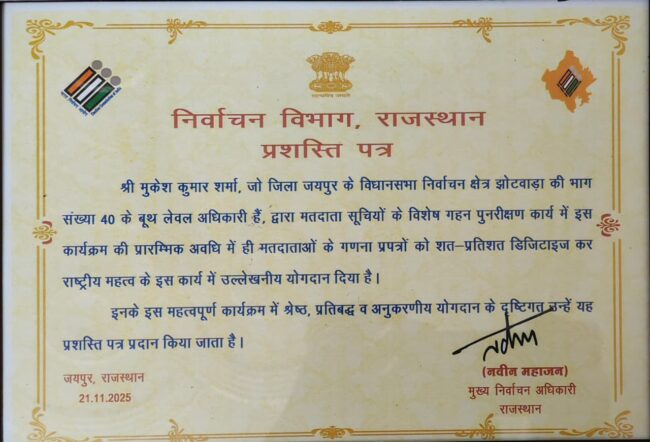 निर्वाचन विभाग, राजस्थान
प्रशस्ति पत्र
श्री मुकेश कुमार शर्मा, जो जिला जयपुर के विधानसभा निर्वाचन क्षेत्र झोटवाड़ा की भाग
संख्या 40 के बूथ लेवल अधिकारी हैं, द्वारा मतदाता सूचियों के विशेष गहन पुनरीक्षण कार्य में इस
कार्यक्रम की प्रारम्मिक अवधि में ही मतदाताओं के गणना प्रपत्रों को शत–प्रतिशत डिजिटाइज कर
राष्ट्रीय महत्व के इस कार्य में उल्लेखनीय योगदान दिया है।
इनके इस महत्वपूर्ण कार्यक्रम में श्रेष्ठ, प्रतिबद्ध व अनुकरणीय योगदान के दृष्टिगत उन्हें यह
प्रशस्ति पत्र प्रदान किया जाता है।
(नवीन महाजन)
मुख्य निर्वाचन अधिकारी
राजस्थान
जयपुर, राजस्थान
21.11.2025